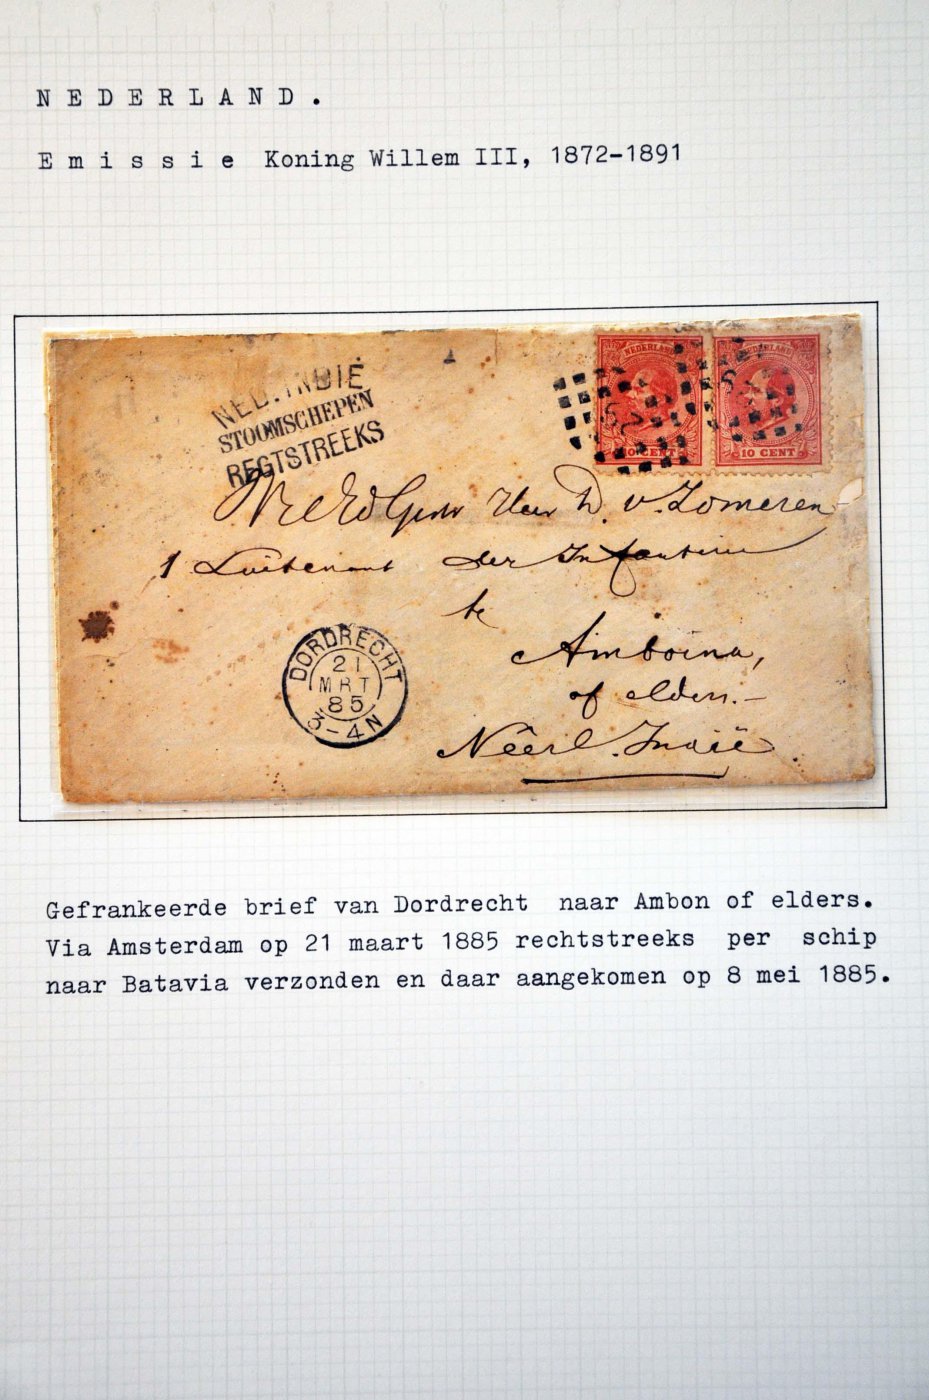 NEDERLAND.
Emissie Koning Willem III, 1872-1891
NED. INDIE
STOOMSCHEPEN
REGTSTREEKS
NEDERLAND
10 CENT
NEDERLAND
10 CENT
WelEdGebr Heer D. v. Zomeren
1 Luitenant der Infanterie
te
Amboina,
of elders.-
Neêrl. Indië
DORDRECHT
21
MRT
85
3-4N
Gefrankeerde brief van Dordrecht naar Ambon of elders.
Via Amsterdam op 21 maart 1885 rechtstreeks per schip
naar Batavia verzonden en daar aangekomen op 8 mei 1885.